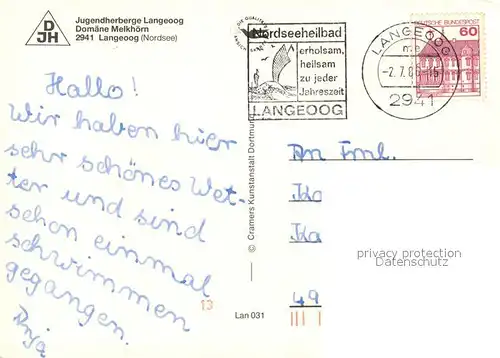 DJH
Jugendherberge Langeoog
Domäne Melkhörn
2941 Langeoog (Nordsee)
Hallo!
Wir haben hier
sehr schönes Wet-
ter und sind
schon einmal
schwimmen
gegangen.
Anja
13
Lan 031
© Cramers Kunstanstalt Dortmund
Nordseeheilbad
erholsam,
heilsam
zu jeder
Jahreszeit
LANGEOOG
LANGEOOG
-2.7.86-15
2941
DEUTSCHE BUNDESPOST
60
An Fml.
Ko
Ka
49
privacy protection
Datenschutz